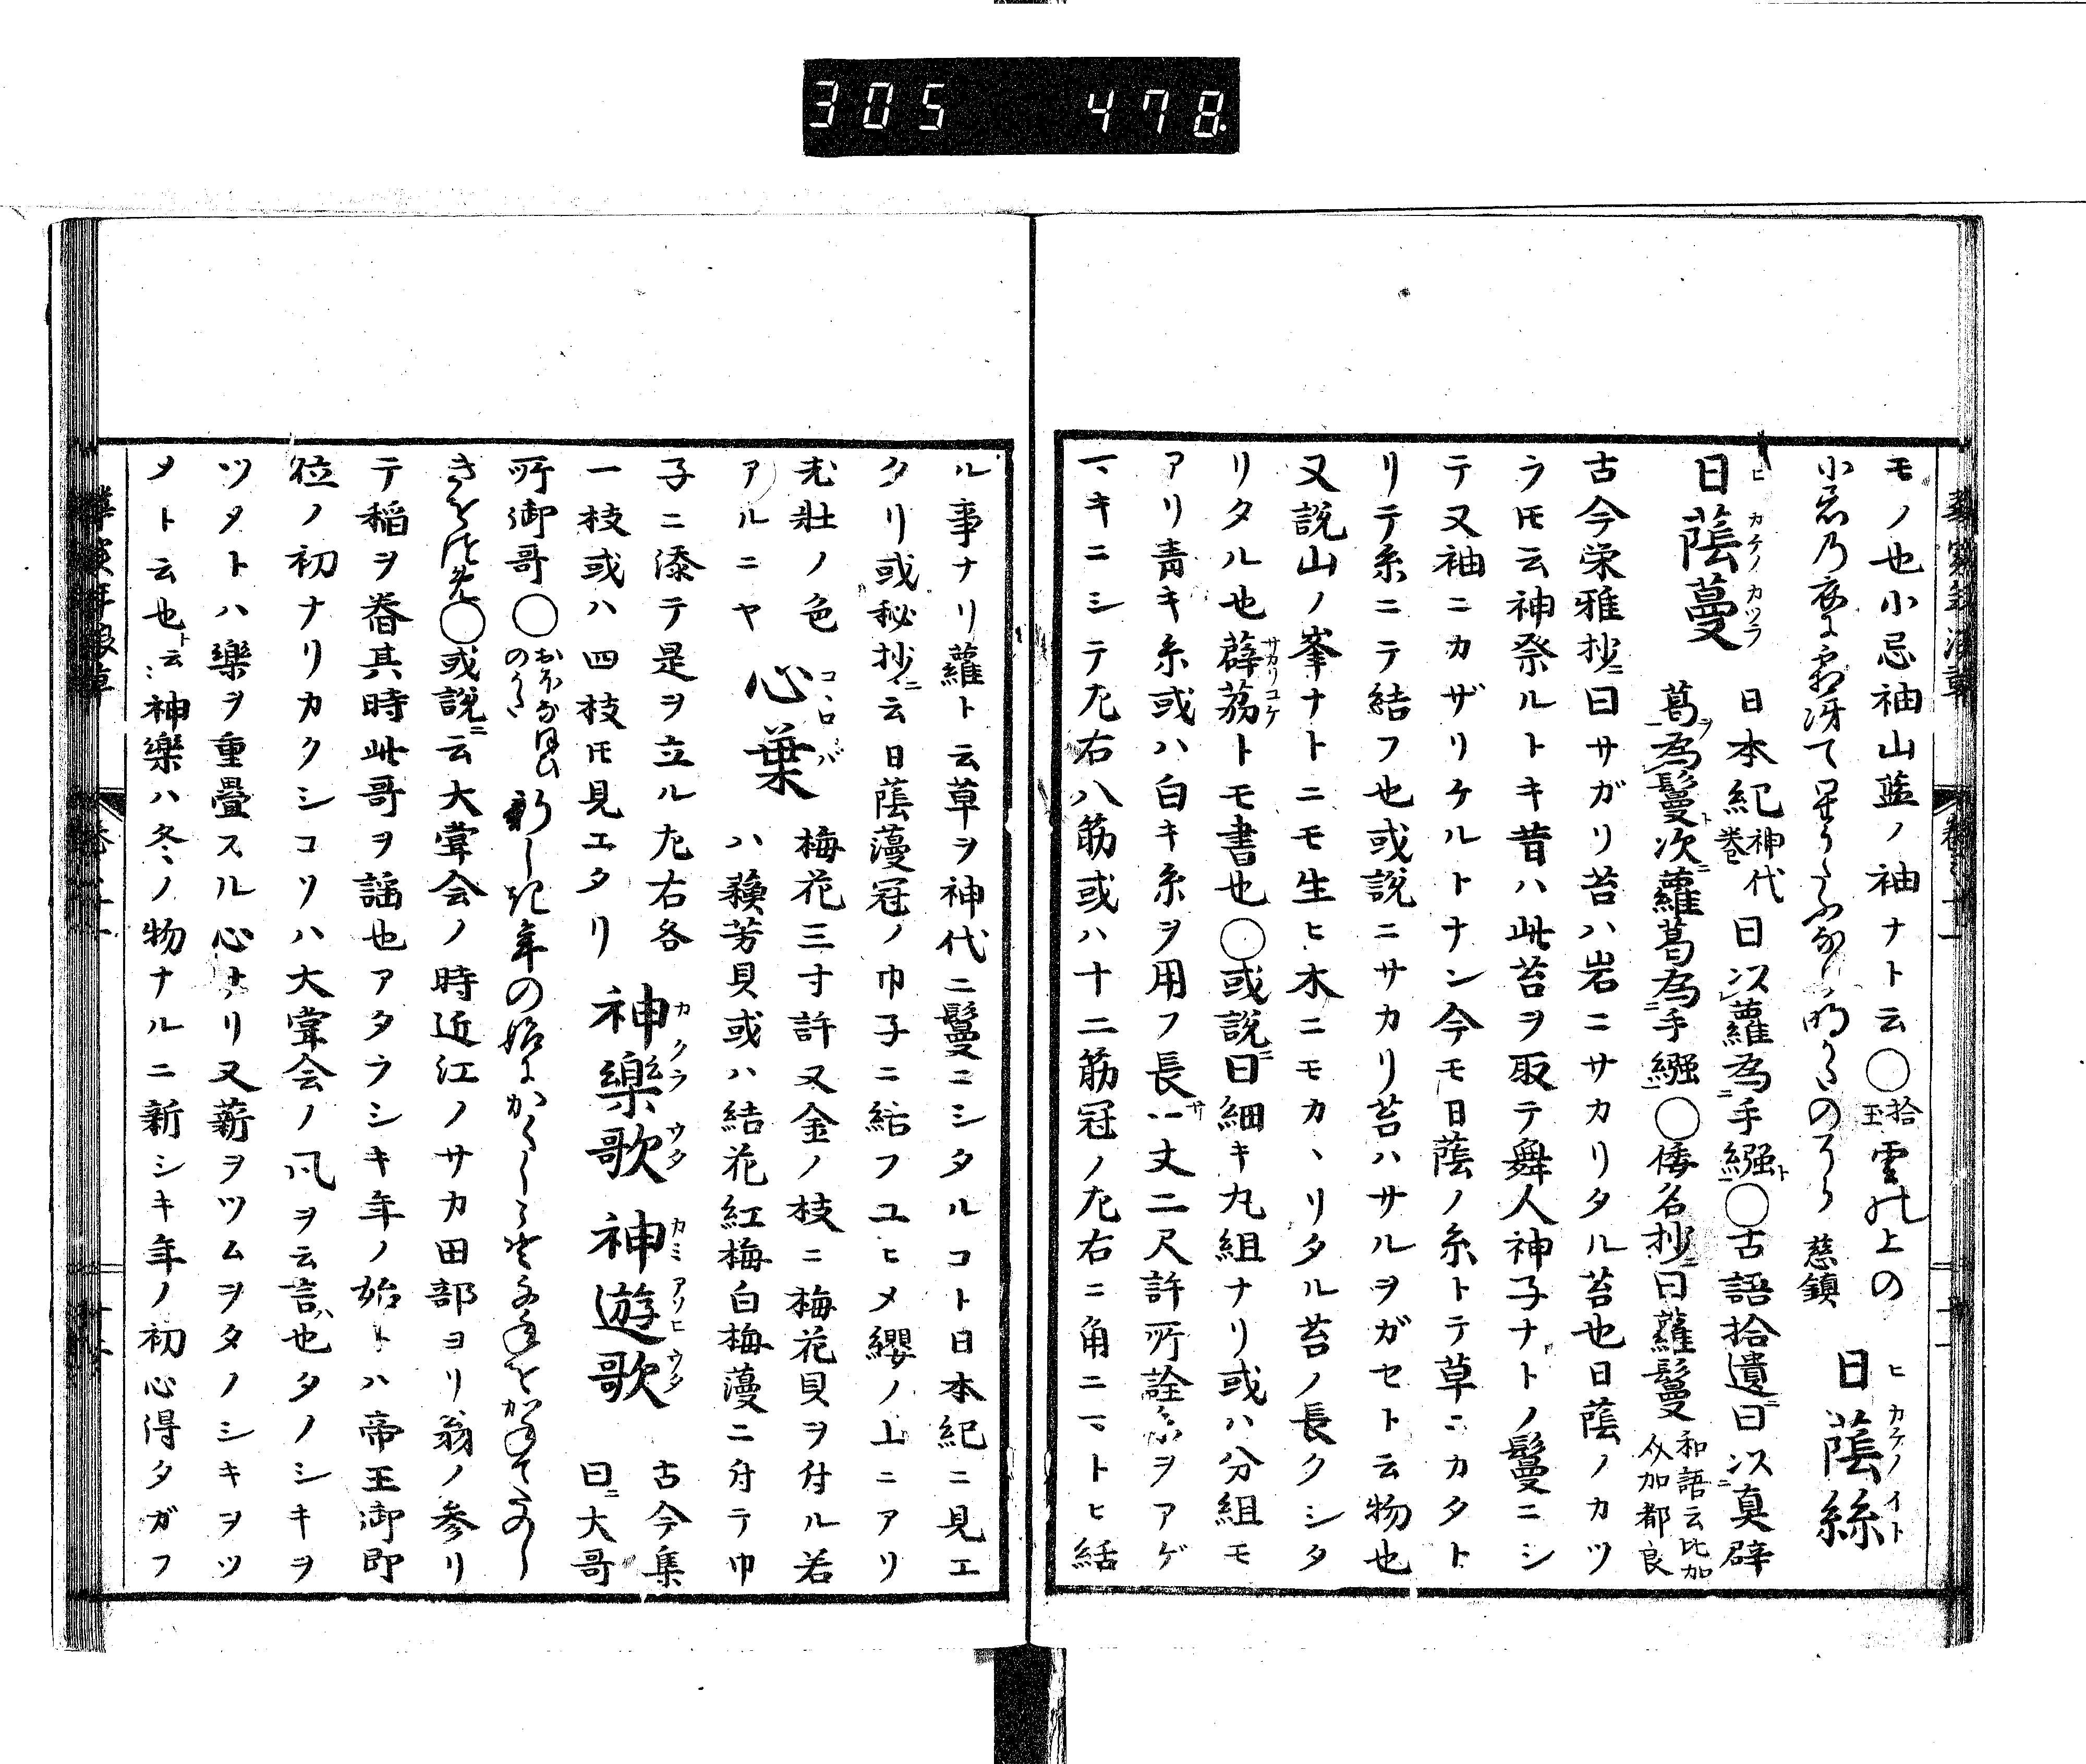 305 478
モノ也小忌袖山藍ノ袖ナト云〇拾玉雲の上の
小忌乃衣に霜冴て 慈鎮 日蔭絲
日蔭蔓 日本紀神代巻曰以蘿為手繦〇古語拾遺ニ曰以真辟
葛為鬘次蘿葛為手繦〇倭名抄ニ曰蘿鬘和語云比加介加都良
古今栄雅抄ニ曰サガリ苔ハ岩ニサカリタル苔也日蔭ノカツ
ラ𪜈云神祭ルトキ昔ハ此苔ヲ取テ舞人神子ナトノ鬘ニシ
テ又袖ニカザリケルトナン今モ日蔭ノ糸トテ草ニカタト
リテ糸ニテ結フ也或説ニサカリ苔ハサルヲガセト云物也
又説山ノ峯ナトニモ生ヒ木ニモカヽリタル苔ノ長クシタ
リタル也薜茘トモ書也〇或説ニ曰細キ丸組ナリ或ハ分組モ
アリ青キ糸或ハ白キ糸ヲ用フ長サ一丈二尺許所詮ヲアゲ
マキニシテ左右八筋或ハ十二筋冠ノ左右ニ角ニマトヒ結
ル事ナリ蘿ト云草ヲ神代ニ鬘ニシタルコト日本紀ニ見エ
タリ或秘抄ニ云日蔭蔓冠ノ巾子ニ結フユヒメ纓ノ上ニアリ
老壮ノ色 心葉 梅花三寸許又金ノ枝ニ梅花貝ヲ付ル若
アルニヤ ハ蘓芳貝或ハ結花紅梅白梅蔓ニ付テ巾
子ニ添テ是ヲ立ル左右各
一枝或ハ四枝𪜈見エタリ 神樂歌 神遊歌 古今集ニ曰大哥
所御哥〇おほなほひのうた 新しき年の始にかくしこそ千とせをかねてたのし
きをつめ〇或説ニ云大甞会ノ時近江ノサカ田部ヨリ翁ノ参リ
テ稲ヲ舂其時此哥ヲ謡也アタラシキ年ノ始トハ帝王御即
位ノ初ナリカクシコソハ大甞会ノ風ヲ云言也タノシキヲ
ツメトハ樂ヲ重疊スル心ナリ又薪ヲツムヲタノシキヲツ
メトハ云也ト云〻神樂ハ冬ノ物ナルニ新シキ年ノ初心得タガフ